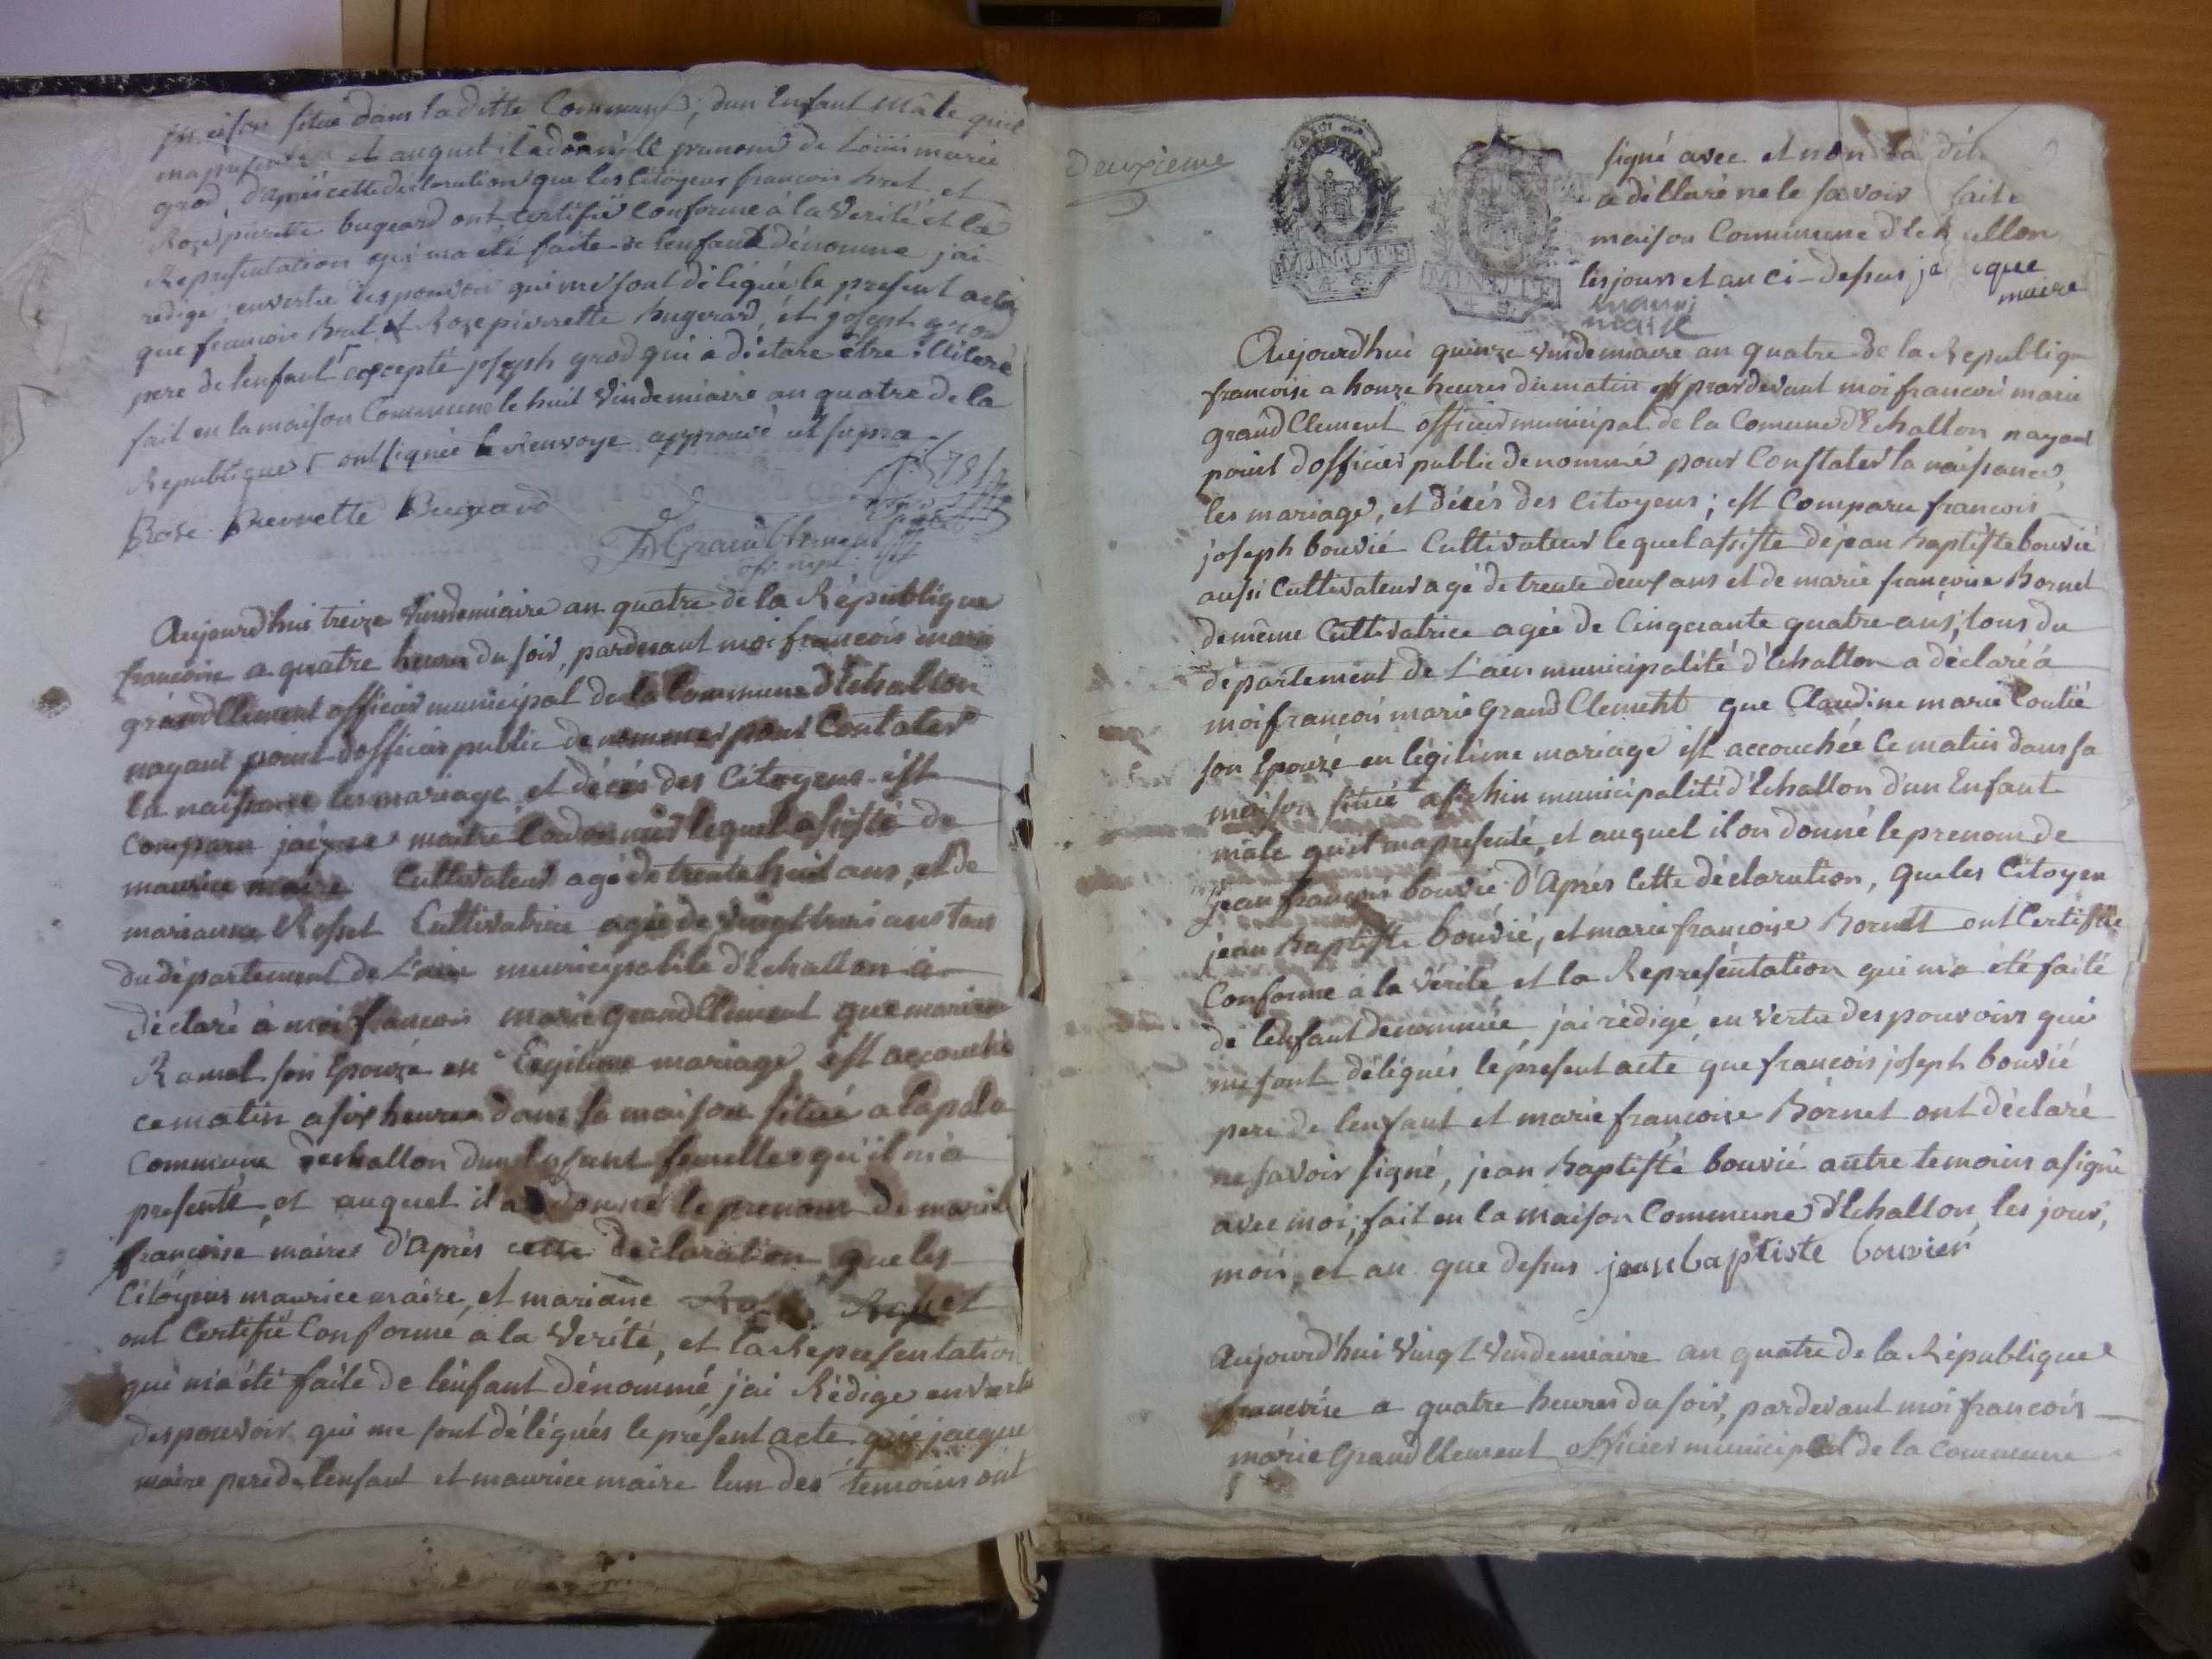 maison situé dans la ditte Commune, dun Enfant mâle quil
ma presenté et auquel il a donné le prenom de Loüis marie
grod, d'apres cette déclaration que les Citoyens francois bret et
Roze pierrette bugeard ont certifié Conforme à la Verité et la
Representation qui ma été faite de lenfant dénommé jai
rédigé, en vertu des pouvoir qui me sont délégué le present acte
que francois bret et Roze pierrette bugerard, et joseph grod
pere de lenfant excepté joseph grod qui a déclaré être illitéré
fait en la maison Commune le huit Vindemiaire an quatre de la
Republique ont signée le renvoye approuvé ut supra
Rose Pierrette Bugeard
fMGrandClement
off. mpl.
Aujourd'hui treize Vindemiaire an quatre de la République
francoise a quatre heures du soir, pardevant moi francois marie
grandClement officier municipal de la Commune d'Echallon
nayant point dofficier public de nommer pour Contater
la naissance les mariage, et décés des Citoyens est
Comparu jacque maitre lequel assisté de
maurice maire Cultivateur agé de trente huit ans, et de
marianne Rosset Cultivatrice agée de vingt trois ans tous
du département de L'ain municipalité d'Echallon a
déclaré à moi francois marie grandClement que marian
Ramel son Epouze en Legitime mariage, est accouché
ce matin a six heures dans sa maison situé a lapala
Commune dechallon dun Enfant femelle qu'il m'a
presenté, et auquel il a donné le prenom de marie
francoise maires d'Après cette déclaration, que les
Citoyens maurice maire, et mariane Rosset
ont Certifié Conforme à la Verité, et la Representation
qui m'a été faite de lenfant dénommé, j'ai Rédigé en vertu
des pouvoir qui me sont délégués le présent acte, que jacque
maire pere de lenfant et maurice maire lun des temoins ont
Deuxieme
MINUTE
MINUTE
signé avec et non la
a déclaré ne le savoir faite
maison Commune d'Echallon
les jours et an ci-dessus jacque
maire
mauri
maire
Aujourd'hui quinze vindemiaire an quatre de la Republiqu
francoise a honze heures du matin pardevant moi francois marie
grandClement officier municipal de la Comune d'Echallon nayant
point dofficier public denommé pour Constater la naissance,
les mariage, et décés des Citoyens; est Comparu francois
joseph bouvié Cultivateur lequel assisté de jean baptiste bouvié
aussi Cultivateur agé de trente deux ans et de marie francoise Bornet
de même Cultivatrice agée de Cinquante quatre ans, tous du
département de L'ain municipalité d'Echallon a déclaré à
moi francois marie GrandClement que Claudine marie Coutié
son Epouze en légitime mariage est accouchée ce matin dans sa
maison situé municipalité d'Echallon d'un Enfant
mâle quil ma presenté, et auquel il on donné le prenom de
jean francois bouvié d'Après cette déclaration, que les Citoyen
jean baptiste bouvié, et marie francoise Bornet ont Certifié
Conforme à la Vérité et la Représéntation qui m'a été faite
de lenfant denommée, jai rédigé, en vertu des pouvoirs qui
me sont délégués le présent acte que francois joseph bouvié
pere de lenfant et marie francoise Bornet ont déclaré
ne savoir signé, jean baptisté bouvié autre temoins a signé
avec moi, fait en la maison Commune d'Echallon, les jour,
mois, et an que dessus jean baptiste bouvier
Aujourd'hui Vingt Vendemiaire an quatre de la République
francoise a quatre heures du soir, pardevant moi francois
marie GrandClement officier municipal de la Commune